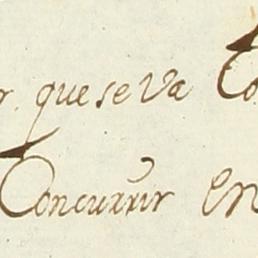 que se va
Concurrir en